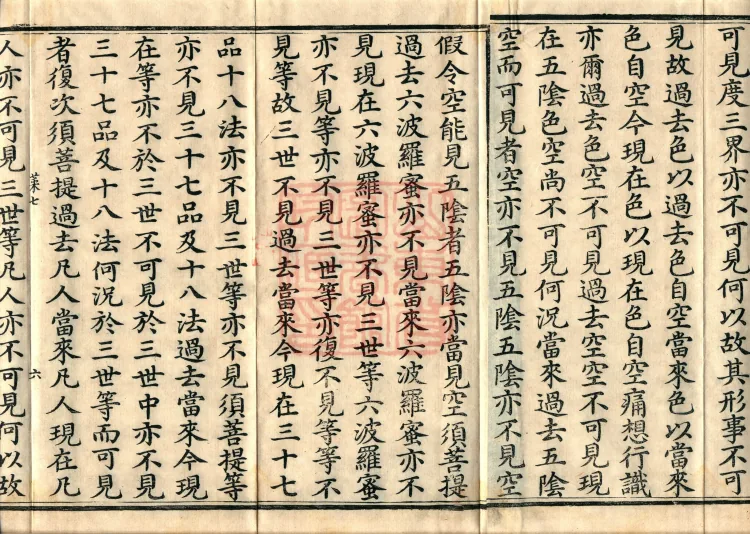 可見度三界亦不可見何以故其形事不可
見故過去色以過去色自空當來色以當來
色自空今現在色以現在色自空痛想行識
亦爾過去色空不可見過去空空不可見現
在五陰色空尚不可見何況當來過去五陰
空而可見者空亦不見五陰五陰亦不見空
假令空能見五陰者五陰亦當見空須菩提
過去六波羅蜜亦不見當來六波羅蜜亦不
見現在六波羅蜜亦不見三世等六波羅蜜
亦不見等亦不見三世等亦復不見等等不
見等故三世不見過去當來今現在三十七
品十八法亦不見三世等亦不見須菩提等
亦不見三十七品及十八法過去當來今現
在等亦不於三世不可見於三世中亦不見
三十七品及十八法何況於三世等而可見
者復次須菩提過去凡人當來凡人現在凡
菜七 六
人亦不可見三世等凡人亦不可見何以故